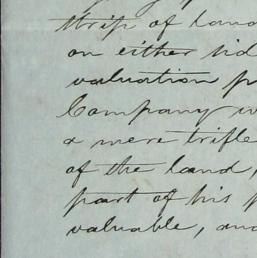 strip of land
on either sid
valuation p
Company w
a mere trifle
of the land,
part of his p
valuable, and